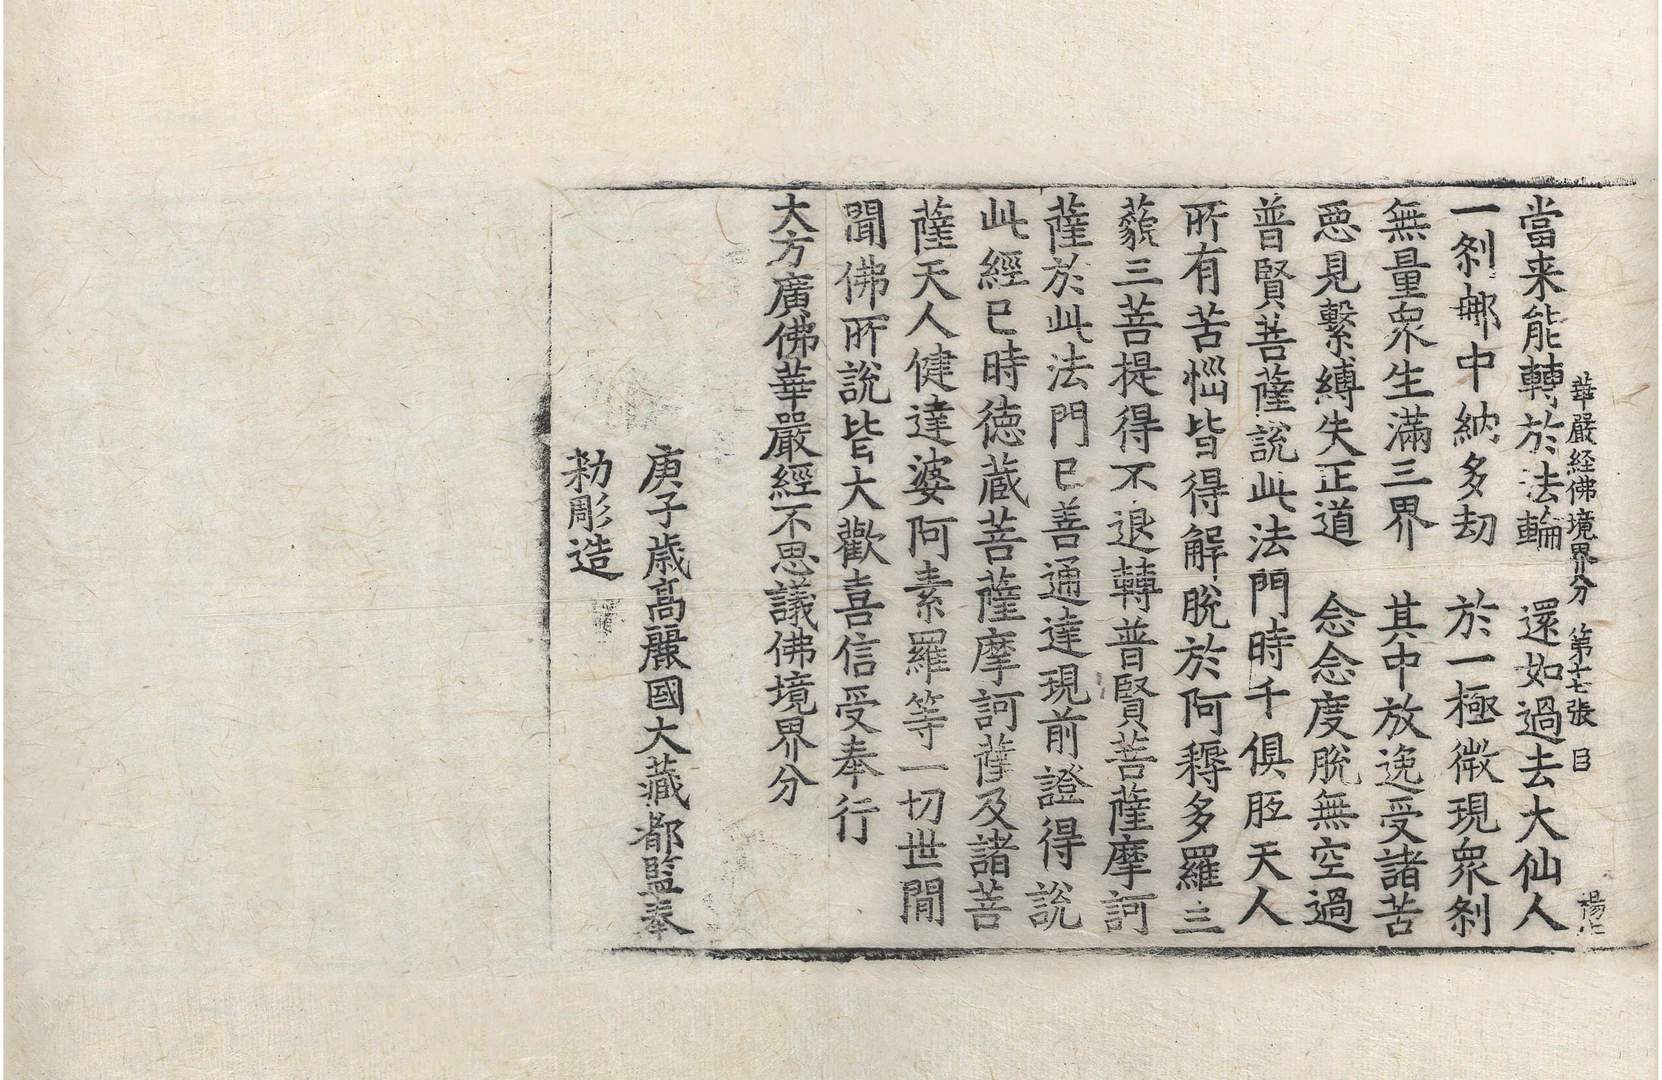 華嚴経佛境界分 第十七張 目 楊
當来能轉於法輪 還如過去大仙人
一刹那中納多劫 於一極微現衆刹
無量衆生滿三界 其中放逸受諸苦
惡見繫縛失正道 念念度脫無空過
普賢菩薩說此法門時千俱胝天人
所有苦惱皆得解脫於阿耨多羅三
藐三菩提得不退轉普賢菩薩摩訶
薩於此法門已善通達現前證得說
此經已時德蔵菩薩摩訶薩及諸菩
薩天人健達婆阿素羅等一切世間
聞佛所說皆大歡喜信受奉行
大方廣佛華嚴經不思議佛境界分
庚子歳高麗國大藏都監奉
勑彫造